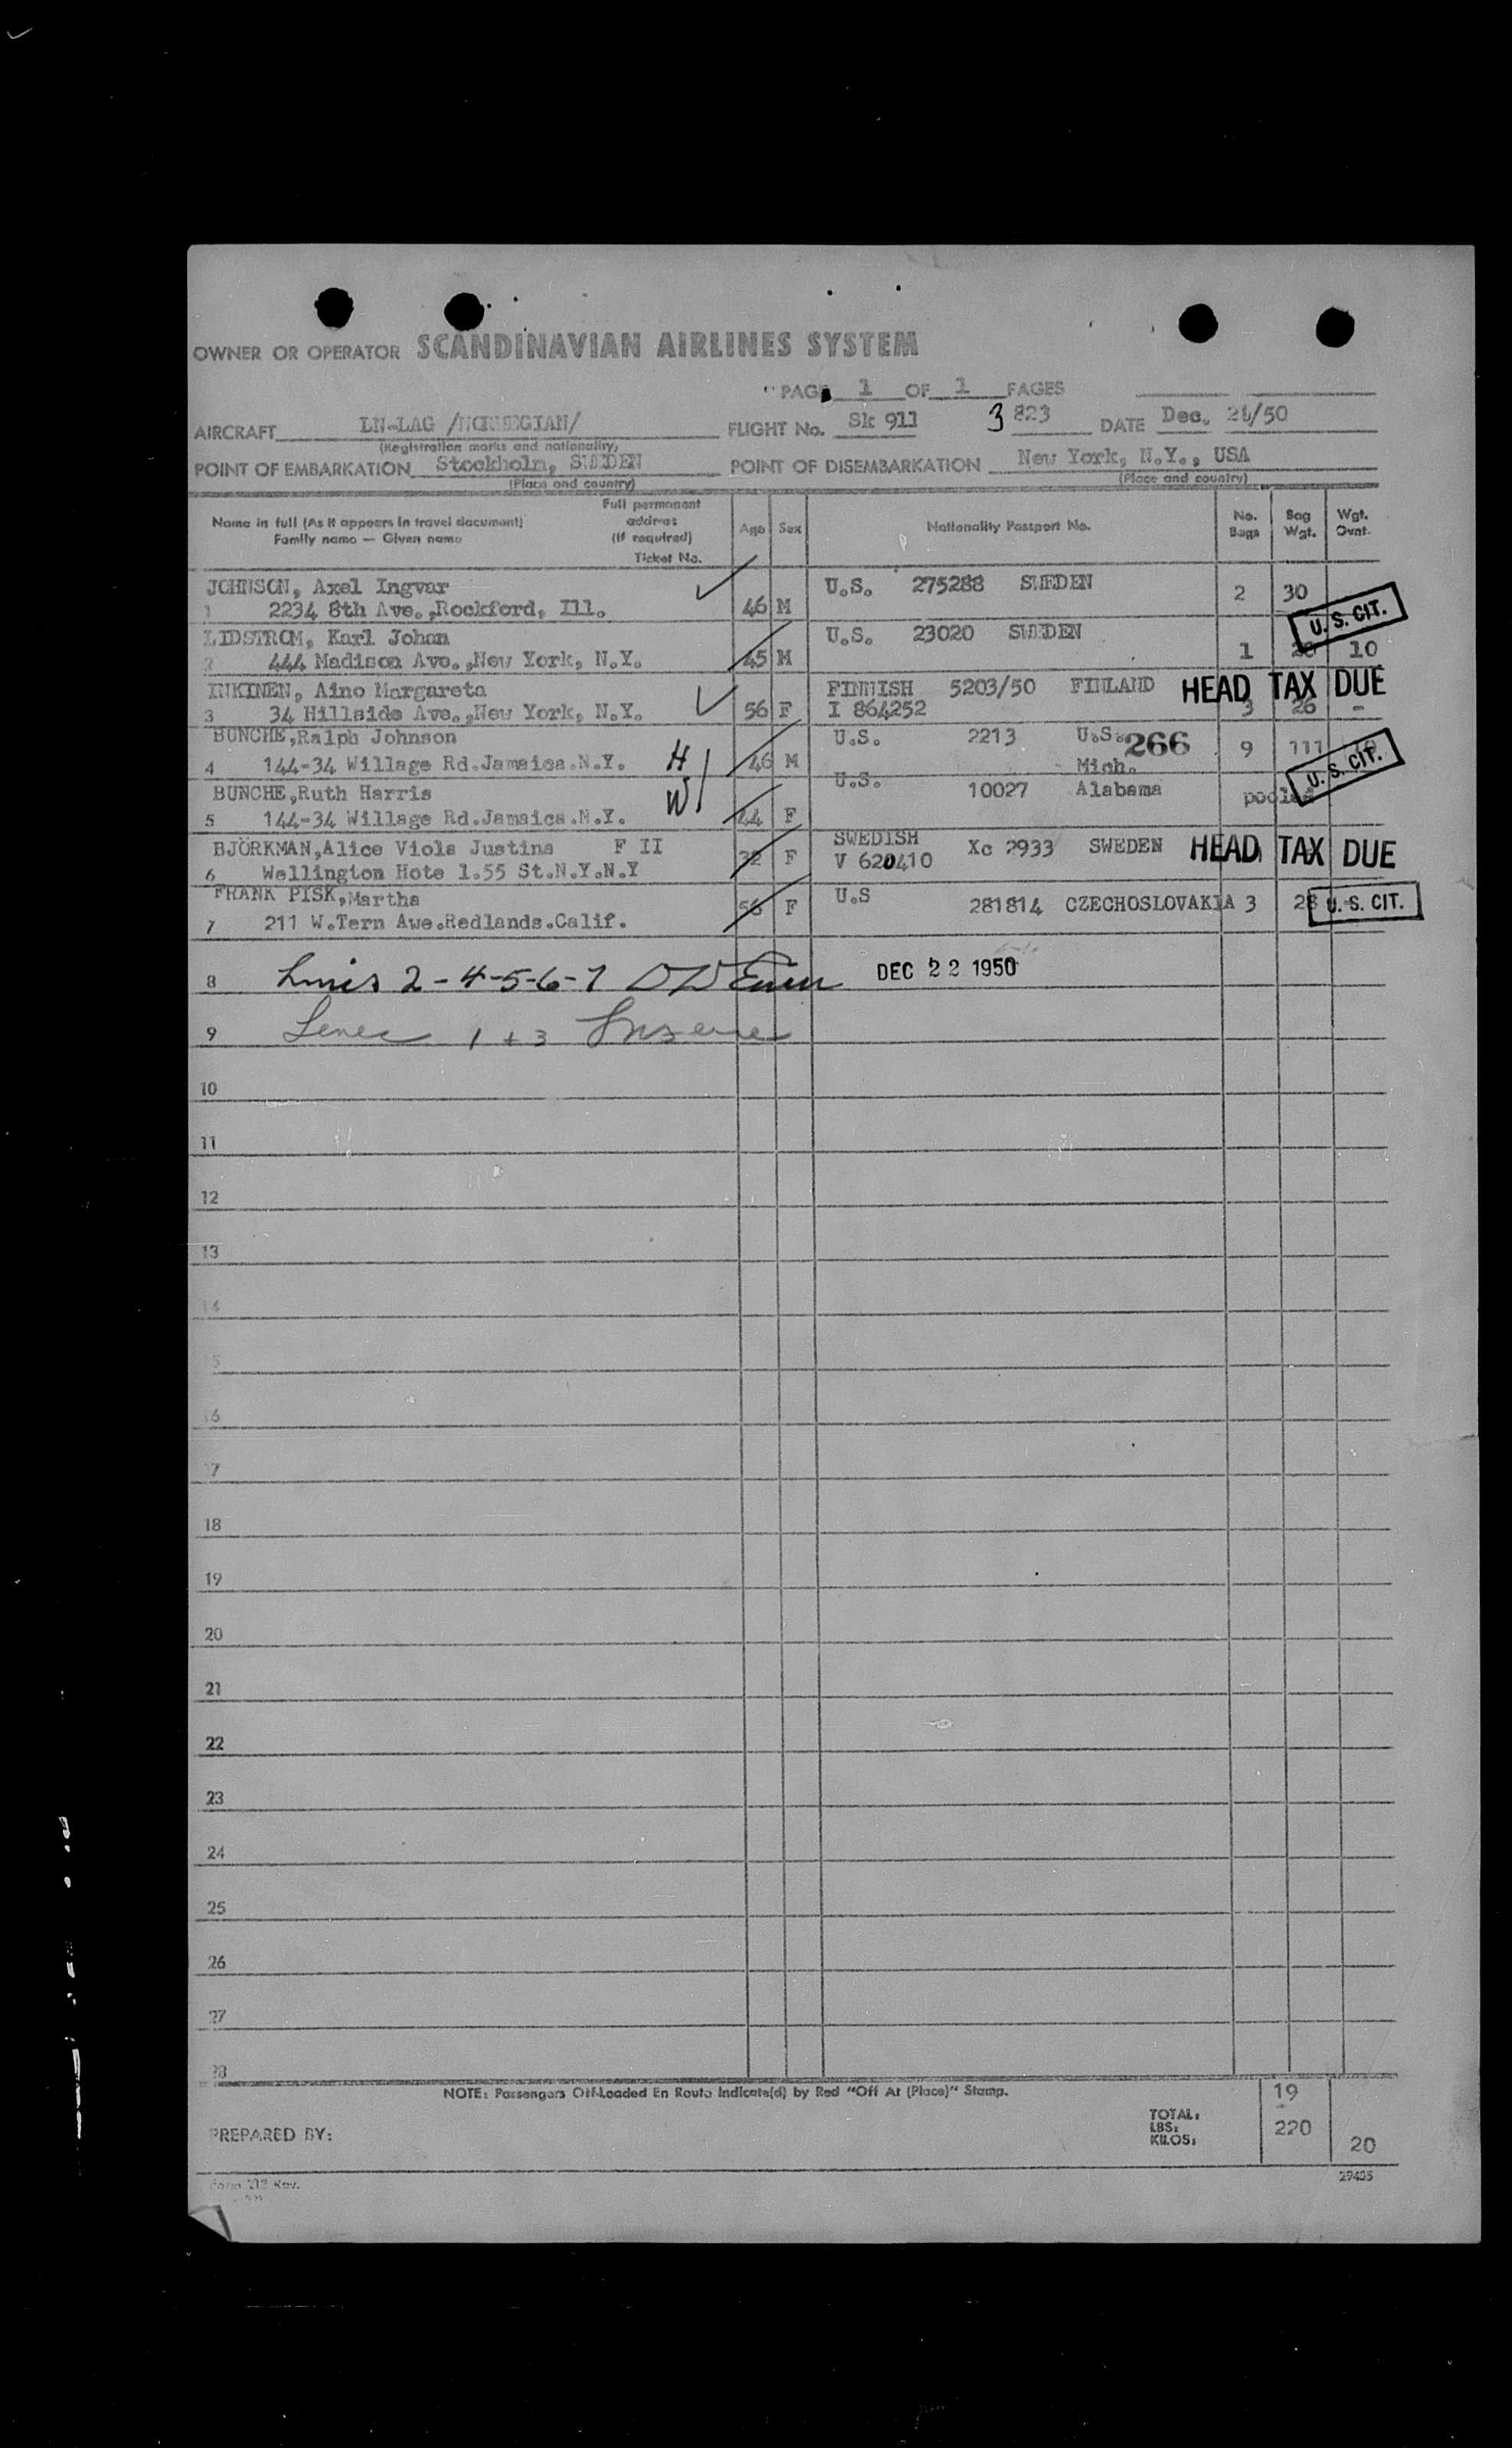 OWNER OR OPERATOR SCANDINAVIAN AIRLINES SYSTEM
PAGE 1 OF 1 PAGES
AIRCRAFT LN-LAG /NORWEGIAN/ FLIGHT No. Sk 911 3 823 DATE Dec. 21/50
(Registration marks and nationality)
POINT OF EMBARKATION Stockholm, SWEDEN POINT OF DISEMBARKATION New York, N.Y., USA
(Place and country) (Place and country)
Name in full (As it appears in travel document) Full permanent address (If required) Age Sex Nationality Passport No. No. Bags Bag Wgt. Wgt. Ovnt.
Family name — Given name Ticket No.
JOHNSON, Axel Ingvar U.S. 275288 SWEDEN 2 30
1 2234 8th Ave.,Rockford, Ill. 46 M
LIDSTROM, Karl Johan U.S. 23020 SWEDEN U. S. CIT.
2 444 Madison Ave.,New York, N.Y. 45 M 1 10
INKINEN, Aino Margareta FINNISH 5203/50 FINLAND HEAD TAX DUE
3 34 Hillside Ave.,New York, N.Y. 56 F I 864252 3 26 -
BUNCHE,Ralph Johnson U.S. 2213 U.S. 266 9 111
4 144-34 Willage Rd.Jamaica.N.Y. H 46 M Mich. U. S. CIT.
BUNCHE,Ruth Harris W U.S. 10027 Alabama pooled
5 144-34 Willage Rd.Jamaica.N.Y. 44 F
BJÖRKMAN,Alice Viola Justina F II F SWEDISH Xc 2933 SWEDEN HEAD TAX DUE
6 Wellington Hote 1.55 St.N.Y.N.Y V 620410
FRANK PISK,Martha 56 F U.S 281814 CZECHOSLOVAKIA 3 28 U. S. CIT.
7 211 W.Tern Awe.Redlands.Calif.
8 2-4-5-6-7 DEC 22 1950
9 1 + 3
10
11
12
13
14
15
16
17
18
19
20
21
22
23
24
25
26
27
28
NOTE: Passengers Off-Loaded En Route Indicate(d) by Red "Off At (Place)" Stamp. 19
TOTAL:
LBS: 220
PREPARED BY: KILOS: 20
Form 212 Rev. 29405